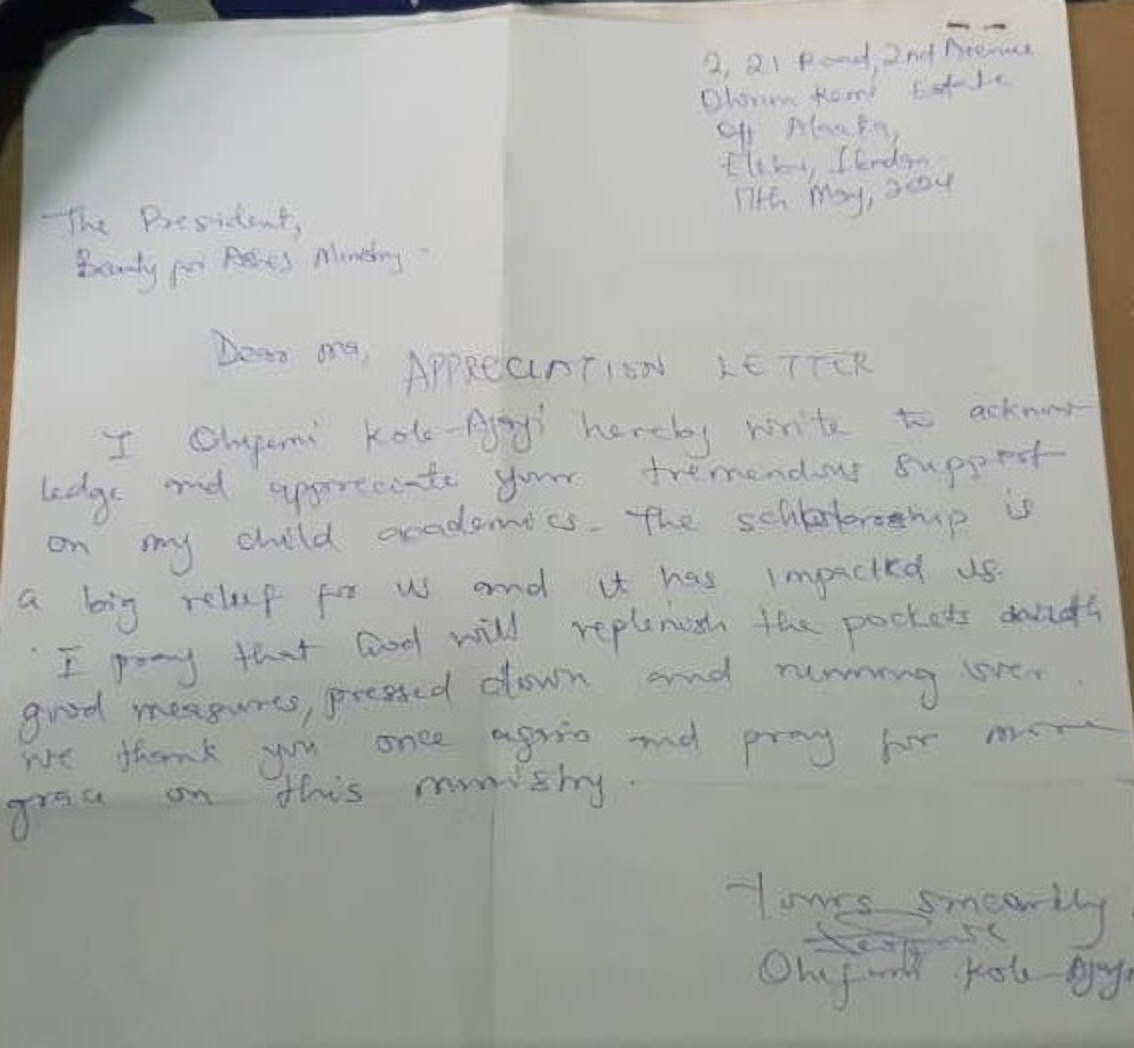 2, 21 Road, 2nd Avenue
Olorun Kemi Estate
Off Alaaka,
Elebu, Ibadan
17th May, 2024
The President,
Beauty for Ashes Ministry.
Dear Ma,
APPRECIATION LETTER
I Olufemi Kole-Ajayi hereby write to acknow-
ledge and appreciate your tremendous support
on my child academics. The scholarship is
a big relief for us and it has impacted us.
I pray that God will replenish the pockets with
good measures, pressed down and running over.
We thank you once again and pray for more
grace on this ministry.
Yours sincerlly,
Olufemi Kole-Ajayi